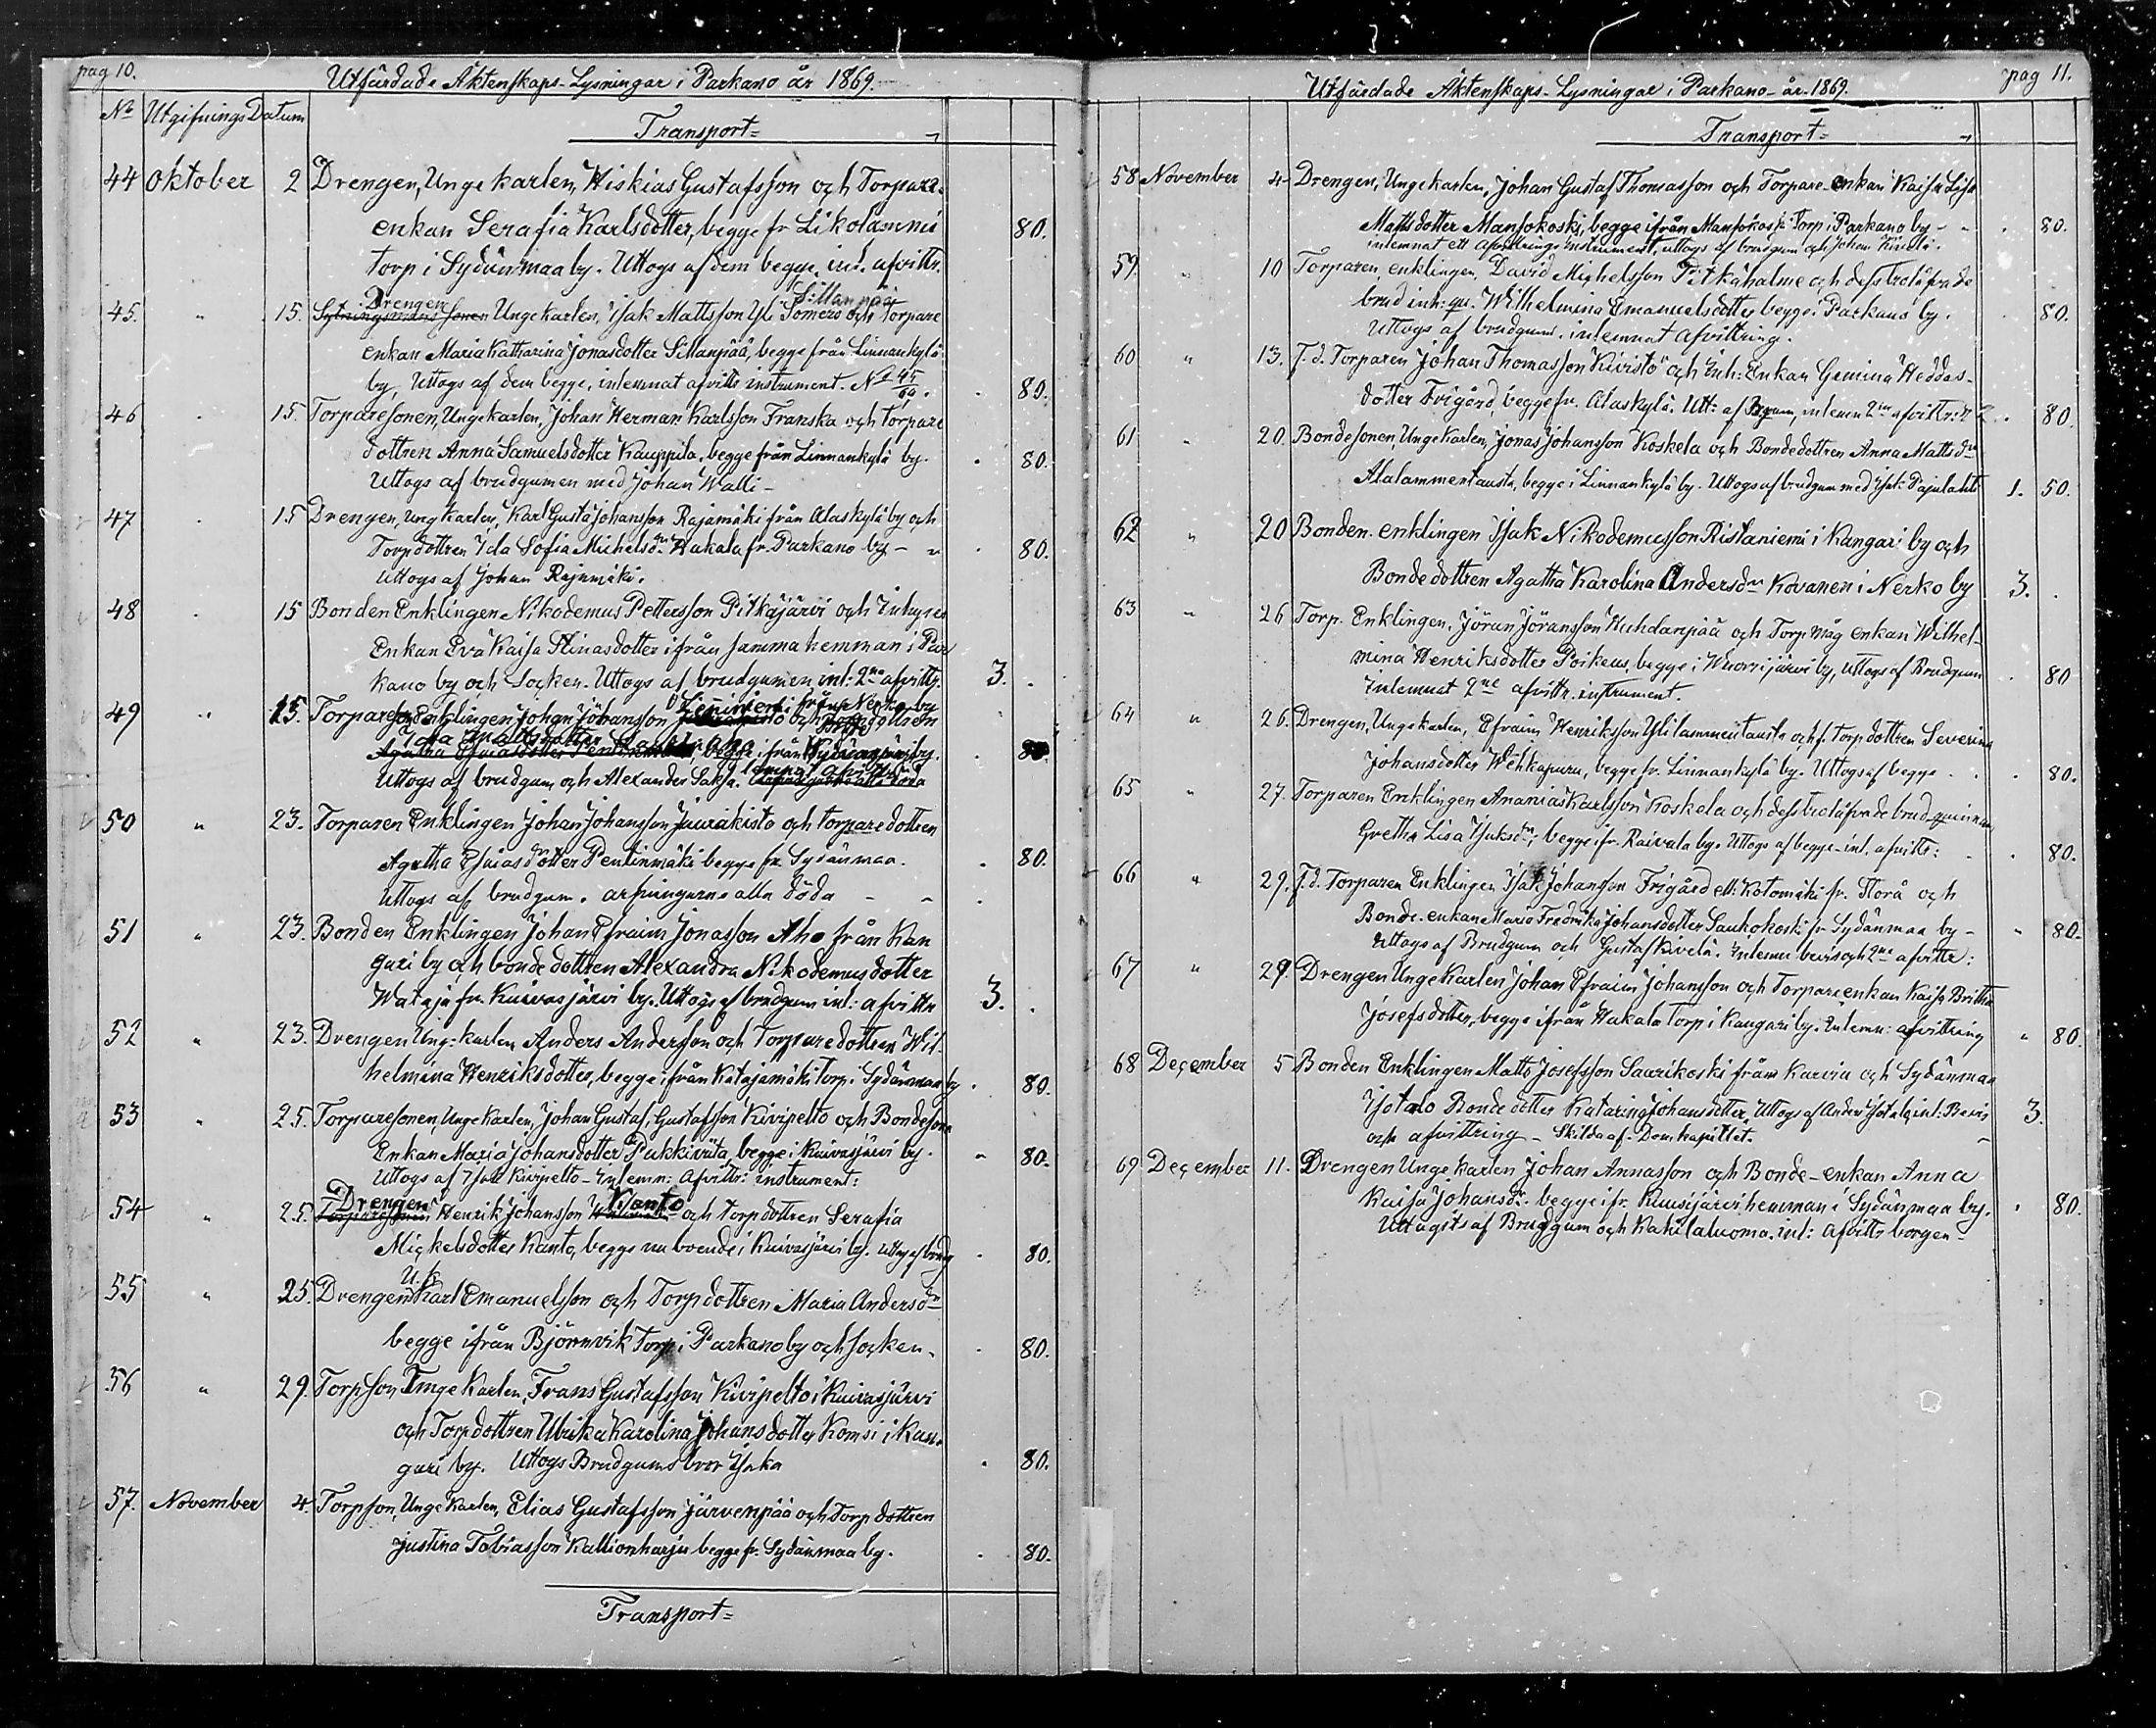 pag 10.
Utfärdade Äktenskaps-Lysningar i Parkano år 1869.
No Utgifnings Datum
Transport=
44 Oktober 2 Drengen, Unge karlen, Hiskias Gustafsson och Torpare-
enkan Serafia Karlsdotter, begge fr Likolammi 80.
torp i Sydänmaa by. Uttogs af dem begge, inl. afvittr.
Drengen Sillanpää
45. " 15. Sytningsmans sonen Ungekarlen, Isak Mattsson Yli Somero och Torpare
enkan Maria Katharina Jonasdotter Sillanpää, begge från Linnankylä
by, Uttogs af dem begge, inlemnat afvittr instrument. No 45/69. 80.
46 " 15. Torparesonen, Ungekarlen, Johan Herman Karlsson Franska och torpare
dottren Anna Samuelsdotter Kauppila, begge från Linnankylä by. 80.
Uttogs af brudgumen med Johan Walli-
47 " 15 Drengen, Ung karlen, Karl Gusta Johansson Rajamäki från Alaskylä by och
Torpdottren Ida Sofia Michelsdr Hakala fr. Parkano by - " 80.
Uttogs af Johan Rajamäki.
48 " 15 Bonden Enklingen Nikodemus Pettersson Pitkäjärvi och Inhyses
Enkan Eva Kaisa Stinasdotter ifrån samma hemman i Par
kano by och Socken. Uttogs af brudgumen, inl: 2ne afvittr. 3.
Leniniemi från Nerko by
49 " 15. Torpare Enklingen Johan Johansson och
Ida Mattsdotter
begge ifrån Sydänmaa by. 80.
Uttogs af brudgum och Alexander Saksa. alla döda
50 " 23. Torparen Enklingen Johan Johansson Jaurakisto och torparedottren
Agatha Esaiasdotter Pentinmäki begge fr. Sydänmaa. 80.
Uttogs af brudgum. arfvingarne alla döda
51 " 23. Bonden Enklingen Johan Efraim Jonasson Aho från Kan
gari by och bonde dottren Alexandra Nikodemusdotter
Wataja fr. Kuivasjärvi by. Uttogs af brudgum inl: afvittr 3.
52 " 23. Drengen Ung: karlen Anders Andersson och Torparedottren Wil-
helmina Henriksdotter, begge ifrån Katajamäki torp i Sydänmaa by. 80.
53 " 25. Torparesonen, Unge karlen, Johan Gustaf Gustafsson Kivipelto och Bondesons
Enkan Maria Johansdotter Pukkiviita, begge i Kuivasjärvi by. 80.
Uttogs af Isak Kivipelto - Inlemn: Afvittr: instrument:
Drengen Kanto
54 " 25. Torparesonen Henrik Johansson och torpdottren Serafia
Mickelsdotter Kanto, begge nu boende i Kuivasjärvi by. Uttog af brudg 80.
U. k
55 " 25. Drengen Karl Emanuelsson och Torpdottren Maria Andersdr
begge ifrån Björnvik Torp i Parkano by och socken. 80.
56 " 29. Torpson, Unge karlen, Frans Gustafsson Kivipelto i Kuivasjärvi
och Torpdottren Ulrika Karolina Johansdotter Komsi i Kan-
gari by. Uttogs Brudgums bror Isaka 80.
57. November 4. Torpson, Unge karlen, Elias Gustafsson Järvenpää och Torpdottren
Justina Tobiasson Kallionharju begge fr. Sydänmaa by. 80.
Transport=
pag 11.
Utfärdade Äktenskaps-Lysningar i Parkano år 1869.
Transport=
58 November 4 Drengen, Ungekarlen, Johan Gustaf Thomasson och Torpare-enkan Kaisa Lisa
Mattsdotter Mansokoski, begge ifrån Mansokoski Torp i Parkano by - 80.
inlemnat ett Afvittrings instrument, uttogs af brudgum och Johan Kivelä.
59. " 10 Torparen, enklingen, David Michelsson Pitkäkalme och dess trolofvade
brud inh: qu. Wilhelmina Emanuelsdotter begge i Parkano by. 80.
Uttogs af brudgum, inlemnat Afvittring.
60 " 13. f. d. Torparen Johan Thomasson Kivistö och Inh: Enkan Gemina Heddas-
dotter Frigård, begge fr. Alaskylä. Utt: af Brgum, inlemn 2ne afvittr: 80.
61 " 20. Bondesonen, Ungekarlen, Jonas Johansson Koskela och Bondedottren Anna Mattsdr
Alalammentausta, begge i Linnankylä by. Uttogs af brudgum med Isak Pajulahti 1. 50.
62 " 20 Bonden, enklingen Isak Nikodemusson Ristaniemi i Kangari by och
Bondedottren Agatha Karolina Andersdr Kovanen i Nerko by 3.
63 " 26 Torp. Enklingen, Jöran Jöransson Huhdanpää och Torp. måg enkan Wilhel-
mina Henriksdotter Poikeus, begge i Wuorijärvi by, Uttogs af Brudgum 80
Inlemnat 2ne afvittr. instrument.
64 " 26. Drengen, Ungekarlen, Efraim Henriksson Ylilammentausta och f. torpdottren Severina
Johansdotter Wehkapuru, begge fr. Linnankylä by. Uttogs af begge 80.
65 " 27. Torparen Enklingen Ananias Karlsson Koskela och dess trolofvade brud quinnan
Gretha Lisa Isaksdr, begge ifr. Raivala by. Uttogs af begge - inl. afvittr: 80.
66 " 29. f. d. Torparen Enklingen Isak Johansson Frigård ell: Kotomäki fr. Storå och
Bonde-enkan Maria Fredrika Johansdotter Saukokoski fr Sydänmaa by - " 80.
Uttogs af Brudgum och Gustaf Kivelä. Inlemn bevis och 2ne afvittr:
67 " 29. Drengen Unge Karlen Johan Efraim Johansson och Torpareenkan Kaisa Britha
Josefsdotter, begge ifrån Hakala Torp i Kangari by. Inlemn: afvittring " 80.
68 December 5 Bonden Enklingen Matts Josefsson Saarikoski från Karvia och Sydänmaa
Isotalo Bonde dotter Katarina Johansdotter, Uttogs af Anders Isotalo, inl: Bevis 3.
och afvittring - Skilda af: Domkapitlet.
69 December 11. Drengen Unge karlen Johan Annasson och Bonde-enkan Anna
Kaisa Johansdr. begge ifr. Kuusijärvi hemman i Sydänmaa by. 80.
Uttagits af Brudgum och Kakilaluoma. inl: Afvittr borgen-